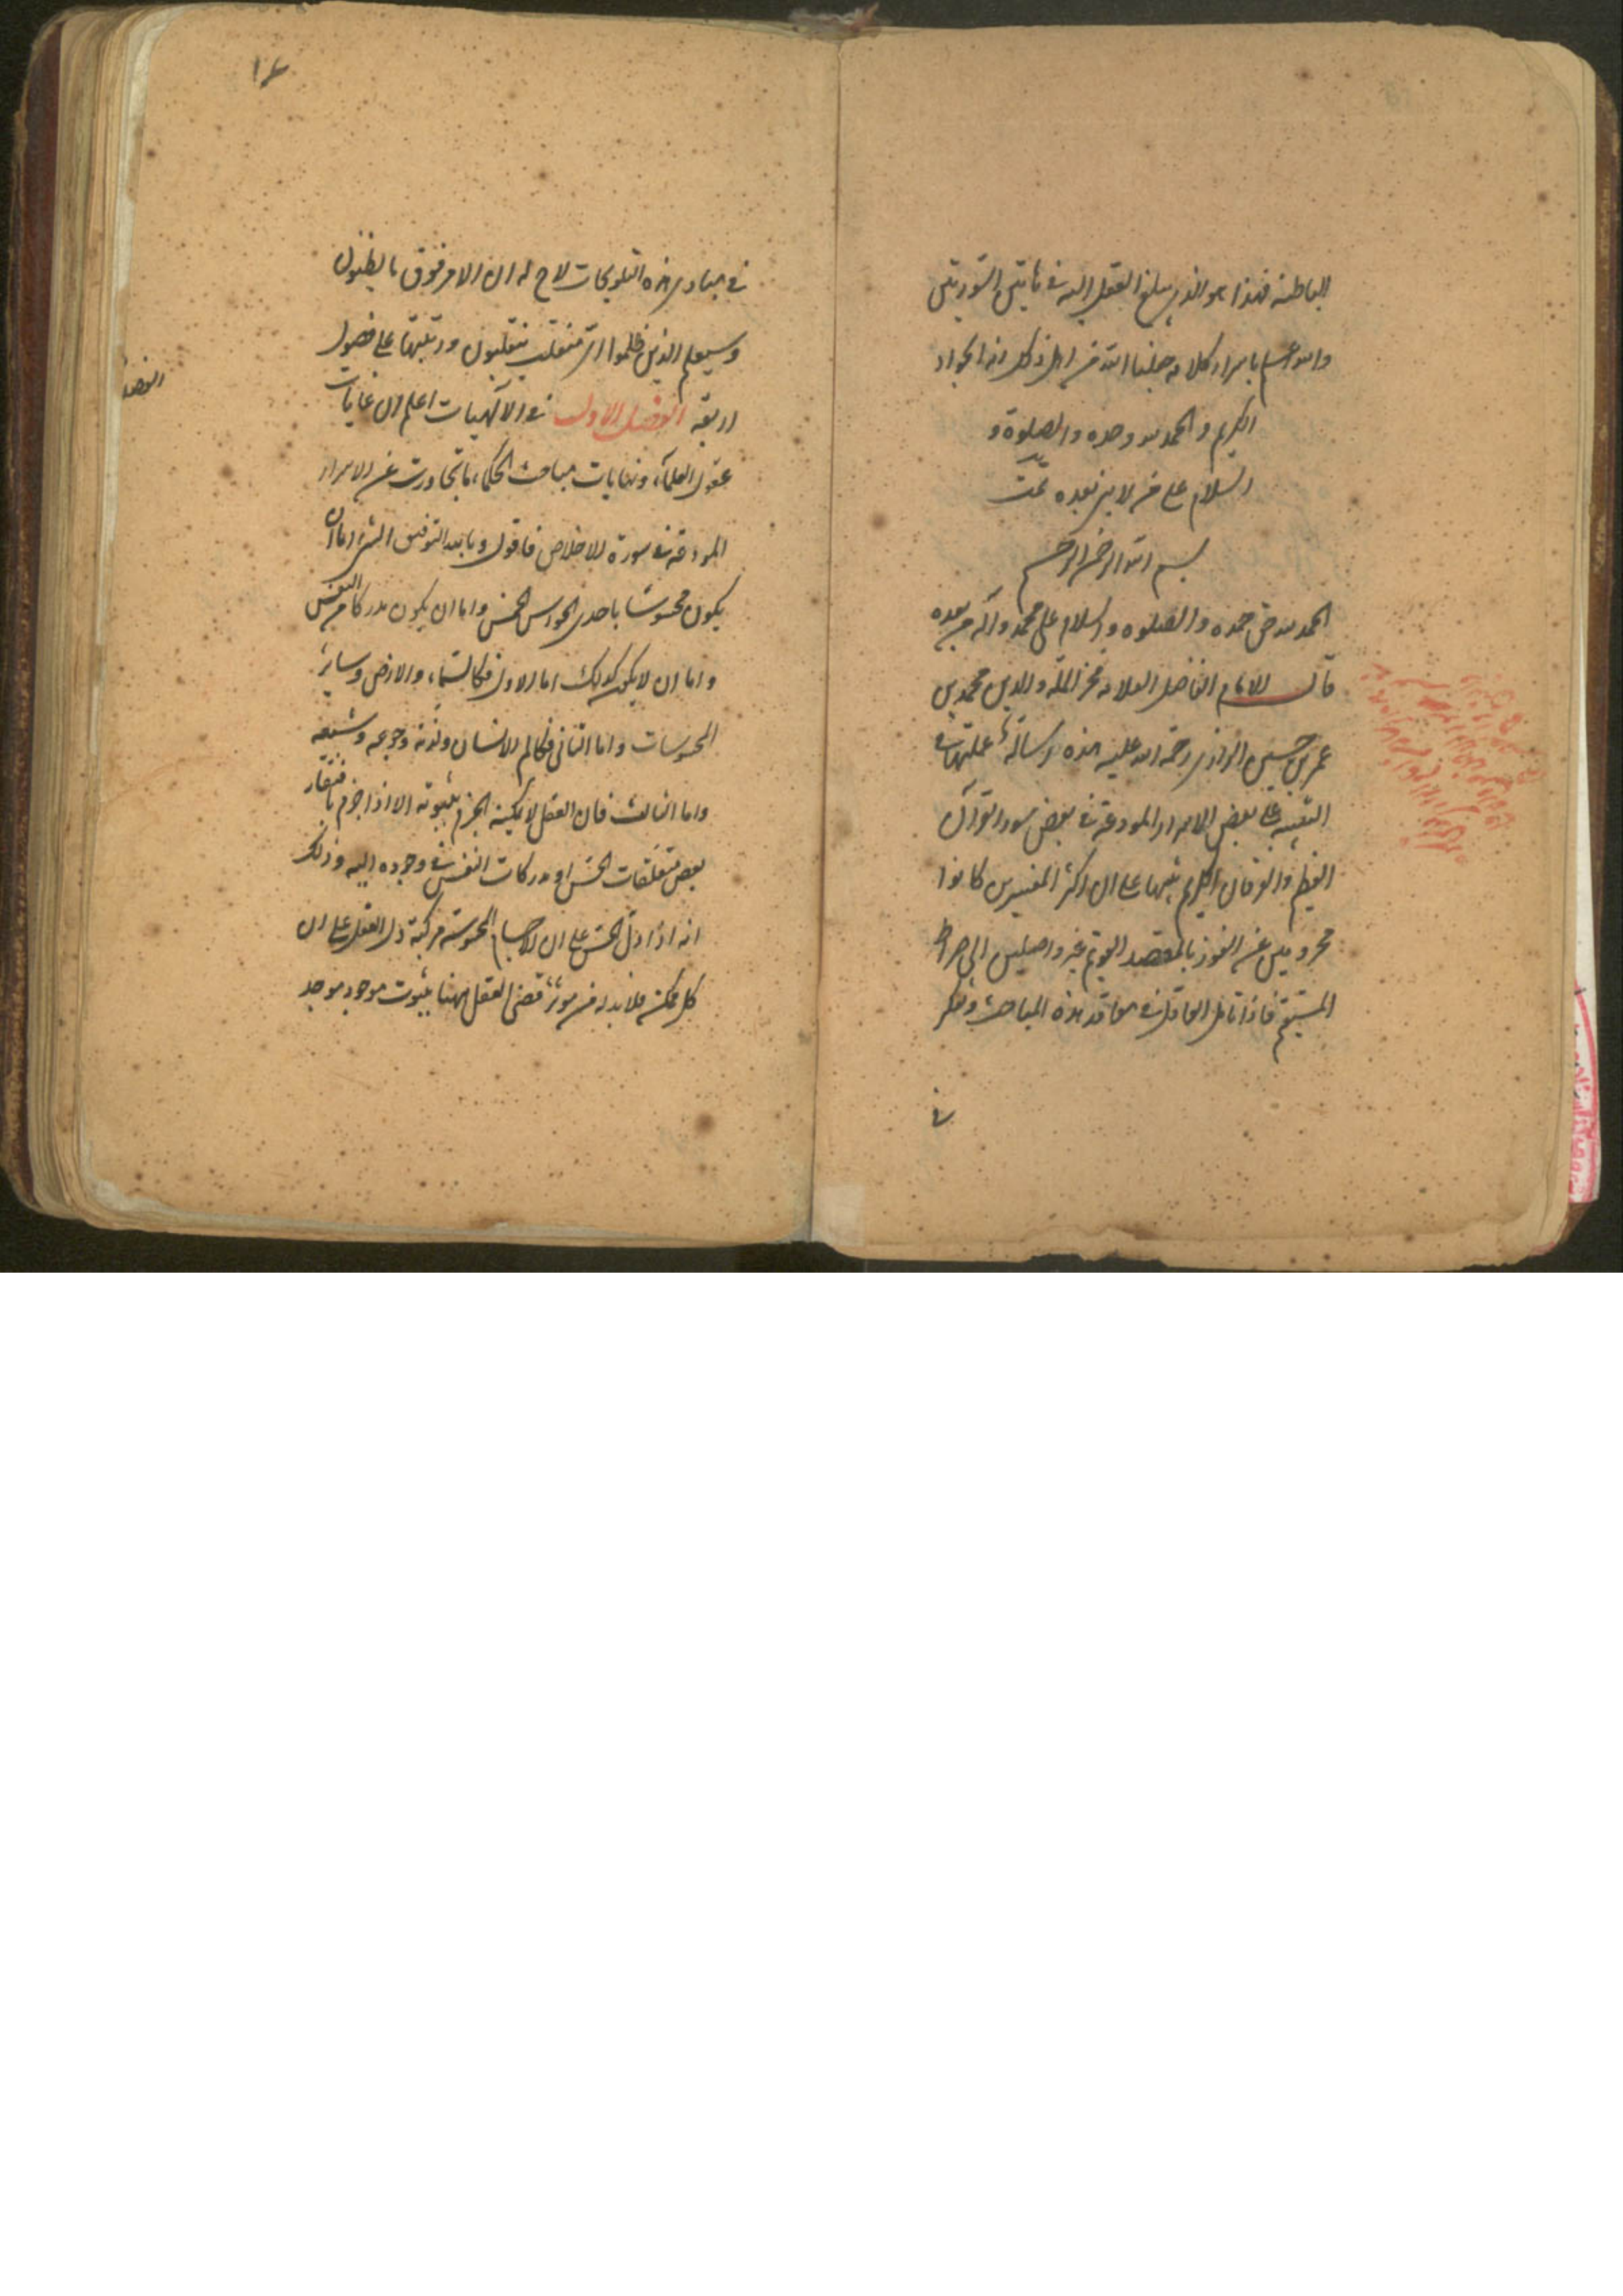 الباطنة فهذا هو الذي يبلغ العقل اليه في هاتين السورتين
والله اعلم باسرار كلامه جعلنا الله من اهل ذلك انه الجواد
الكريم والحمد لله وحده والصلوة و
السلام على من لا نبي بعده تمت
بسم الله الرحمن الرحيم
الحمد لله حق حمده والصلوه والسلام على محمد وآله من بعده
قال الامام الفاضل العلامه فخر الملة والدين محمد بن
عمر بن حسين الرازي رحمة الله عليه هذه رسالة عملتها في
التنبيه على بعض الاسرار المودعة في بعض سور القرآن
العظيم والفرقان الكريم تنبيها على ان اكثر المفسرين كانوا
محرومين عن الفوز بالمقصد القويم غير واصلين الى صراط
المستقيم فاذا تامل العاقل في معاقد هذه المباحث وتفكر
في
١٤
في مبادي هذه التلويحات لاح له ان الامر فوق ما يظنون
وسيعلم الذين ظلموا اي منقلب ينقلبون ورتبتها على فصول
اربعة الفصل الاول في الآلهيات اعلم ان غايات
عقول العلماء ونهايات مباحث الحكماء ما تجاوزت عن الاسرار
المودعة في سورة الاخلاص فاقول وبالله التوفيق الشئ اما ان
يكون محسوسا باحدى الحواس الخمس واما ان يكون مدركا من النفس
واما ان لا يكون كذلك اما الاول فكالسماء والارض وساير
المحسوسات واما الثاني فكالم الانسان ولذته وجوعه وشبعه
واما الثالث فان العقل لا يمكنه الجزم بثبوته الا اذا جزم بافتقار
بعض متعلقات الحس او مدركات النفس في وجوده اليه وذلك
انه اذا دل الحس على ان الاجسام المحسوسة مركبة دل العقل على ان
كل ممكن فلا بد له من مؤثر قضى العقل ههنا بثبوت موجود موجد